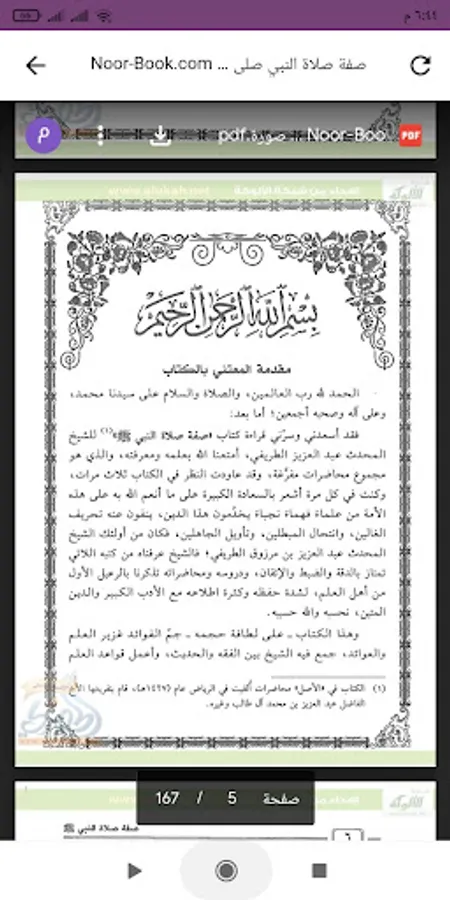 ٦:٤٤ م
صفة صلاة النبي صلى ... Noor-Book.com
Noor-Boo... صورة pdf
PDF
م
www.alukah.net
إهداء من شبكة الألوكة
بسم الله الرحمن الرحيم
مقدمة المعتني بالكتاب
الحمد لله رب العالمين، والصلاة والسلام على سيدنا محمد،
وعلى آله وصحبه أجمعين؛ أما بعد:
فقد أسعدني وسرّني قراءة كتاب «صفة صلاة النبي ﷺ»(١) للشيخ
المحدث عبد العزيز الطريفي، أمتعنا الله بعلمه ومعرفته، والذي هو
مجموع محاضرات مفرَّغة، وقد عاودت النظر في الكتاب ثلاث مرات،
وكنت في كل مرة أشعر بالسعادة الكبيرة على ما أنعم الله به على هذه
الأمة من علماء فهماء نجباء يخدُمون هذا الدين، ينفون عنه تحريف
الغالين، وانتحال المبطلين، وتأويل الجاهلين، فكان من أولئك الشيخ
المحدث عبد العزيز بن مرزوق الطريفي؛ فالشيخ عرفناه من كتبه اللاتي
تمتاز بالدقة والضبط والإتقان، ودروسه ومحاضراته تذكرنا بالرعيل الأول
من أهل العلم، لشدة حفظه وكثرة اطلاعه مع الأدب الكبير والدين
المتين، نحسبه والله حسيبه.
وهذا الكتاب ـ على لطافة حجمه ـ جمّ الفوائد غزير العلم
والعوائد، جمع فيه الشيخ بين الفقه والحديث، وأعمل قواعد العلم
(١) الكتاب في «الأصل» محاضرات ألقيت في الرياض عام (١٤٢٧هـ)، قام بتفريغها الأخ
الفاضل عبد العزيز بن محمد آل طالب وغيره.
صفحة 5 / 167
الألوكة
صفة صلاة النبي ﷺ
٦